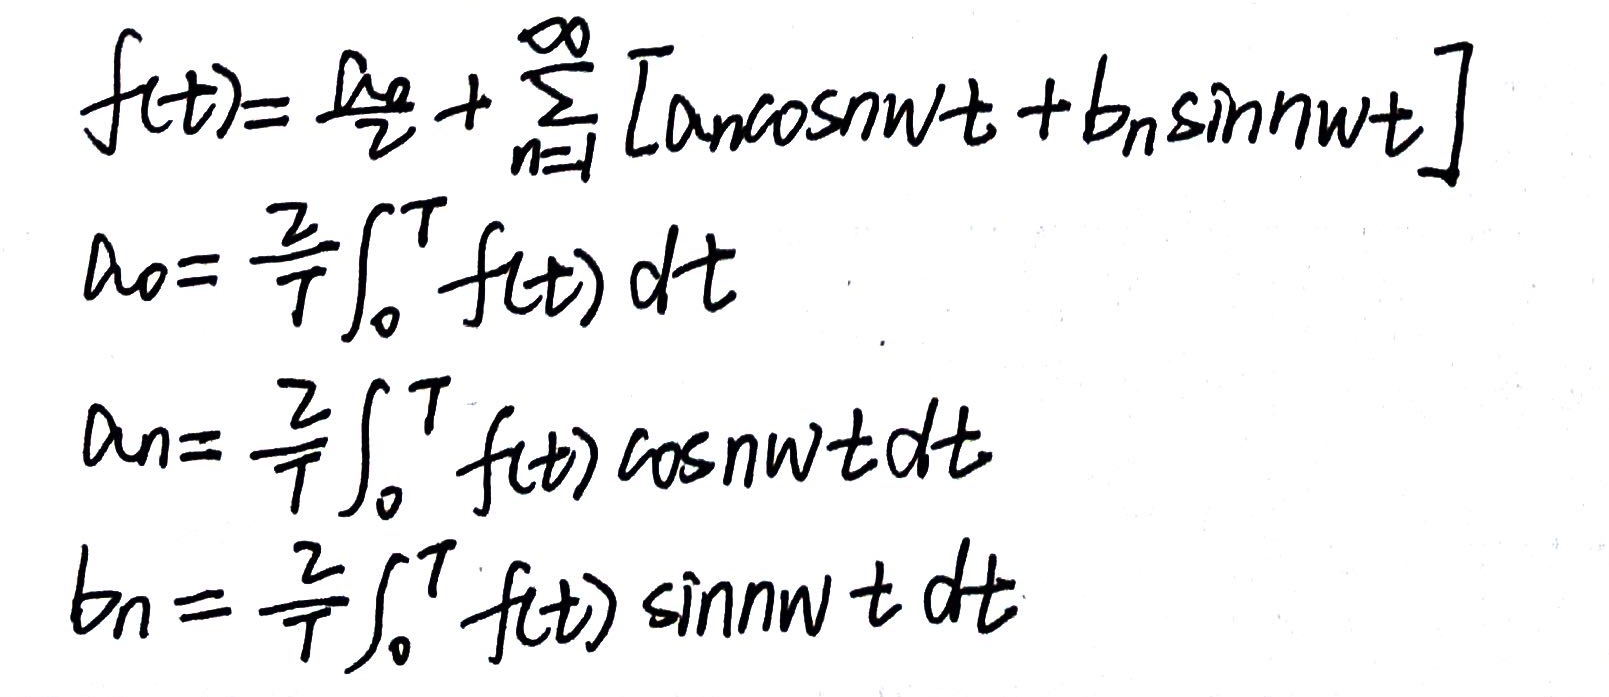 f(t) = a₀/2 + ∑_{n=1}^{∞} [aₙcosnwt + bₙsinnwt]
a₀ = 2/T ∫₀ᵀ f(t) dt
aₙ = 2/T ∫₀ᵀ f(t) cosnwt dt
bₙ = 2/T ∫₀ᵀ f(t) sinnwt dt